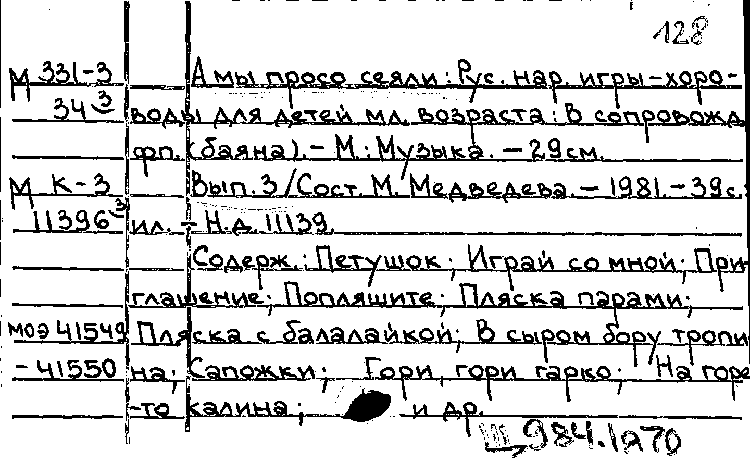 128
М 331-3 А мы просо сеяли: Рус. нар. игры-хоро-
34 3 воды для детей мл. возраста: В сопровожд.
фп. (баяна). – М.: Музыка. – 29 см.
М К-3 Вып. 3 / Сост. М. Медведева. – 1981. – 39 с.:
11396 3 ил. – Н.д. 11139.
Содерж.: Петушок; Играй со мной; При-
глашение; Попляшите; Пляска парами;
МОЭ 41549 Пляска с балалайкой; В сыром бору тропи-
-41550 на; Сапожки; Гори, гори гарко; На горе
-то калина; и др.